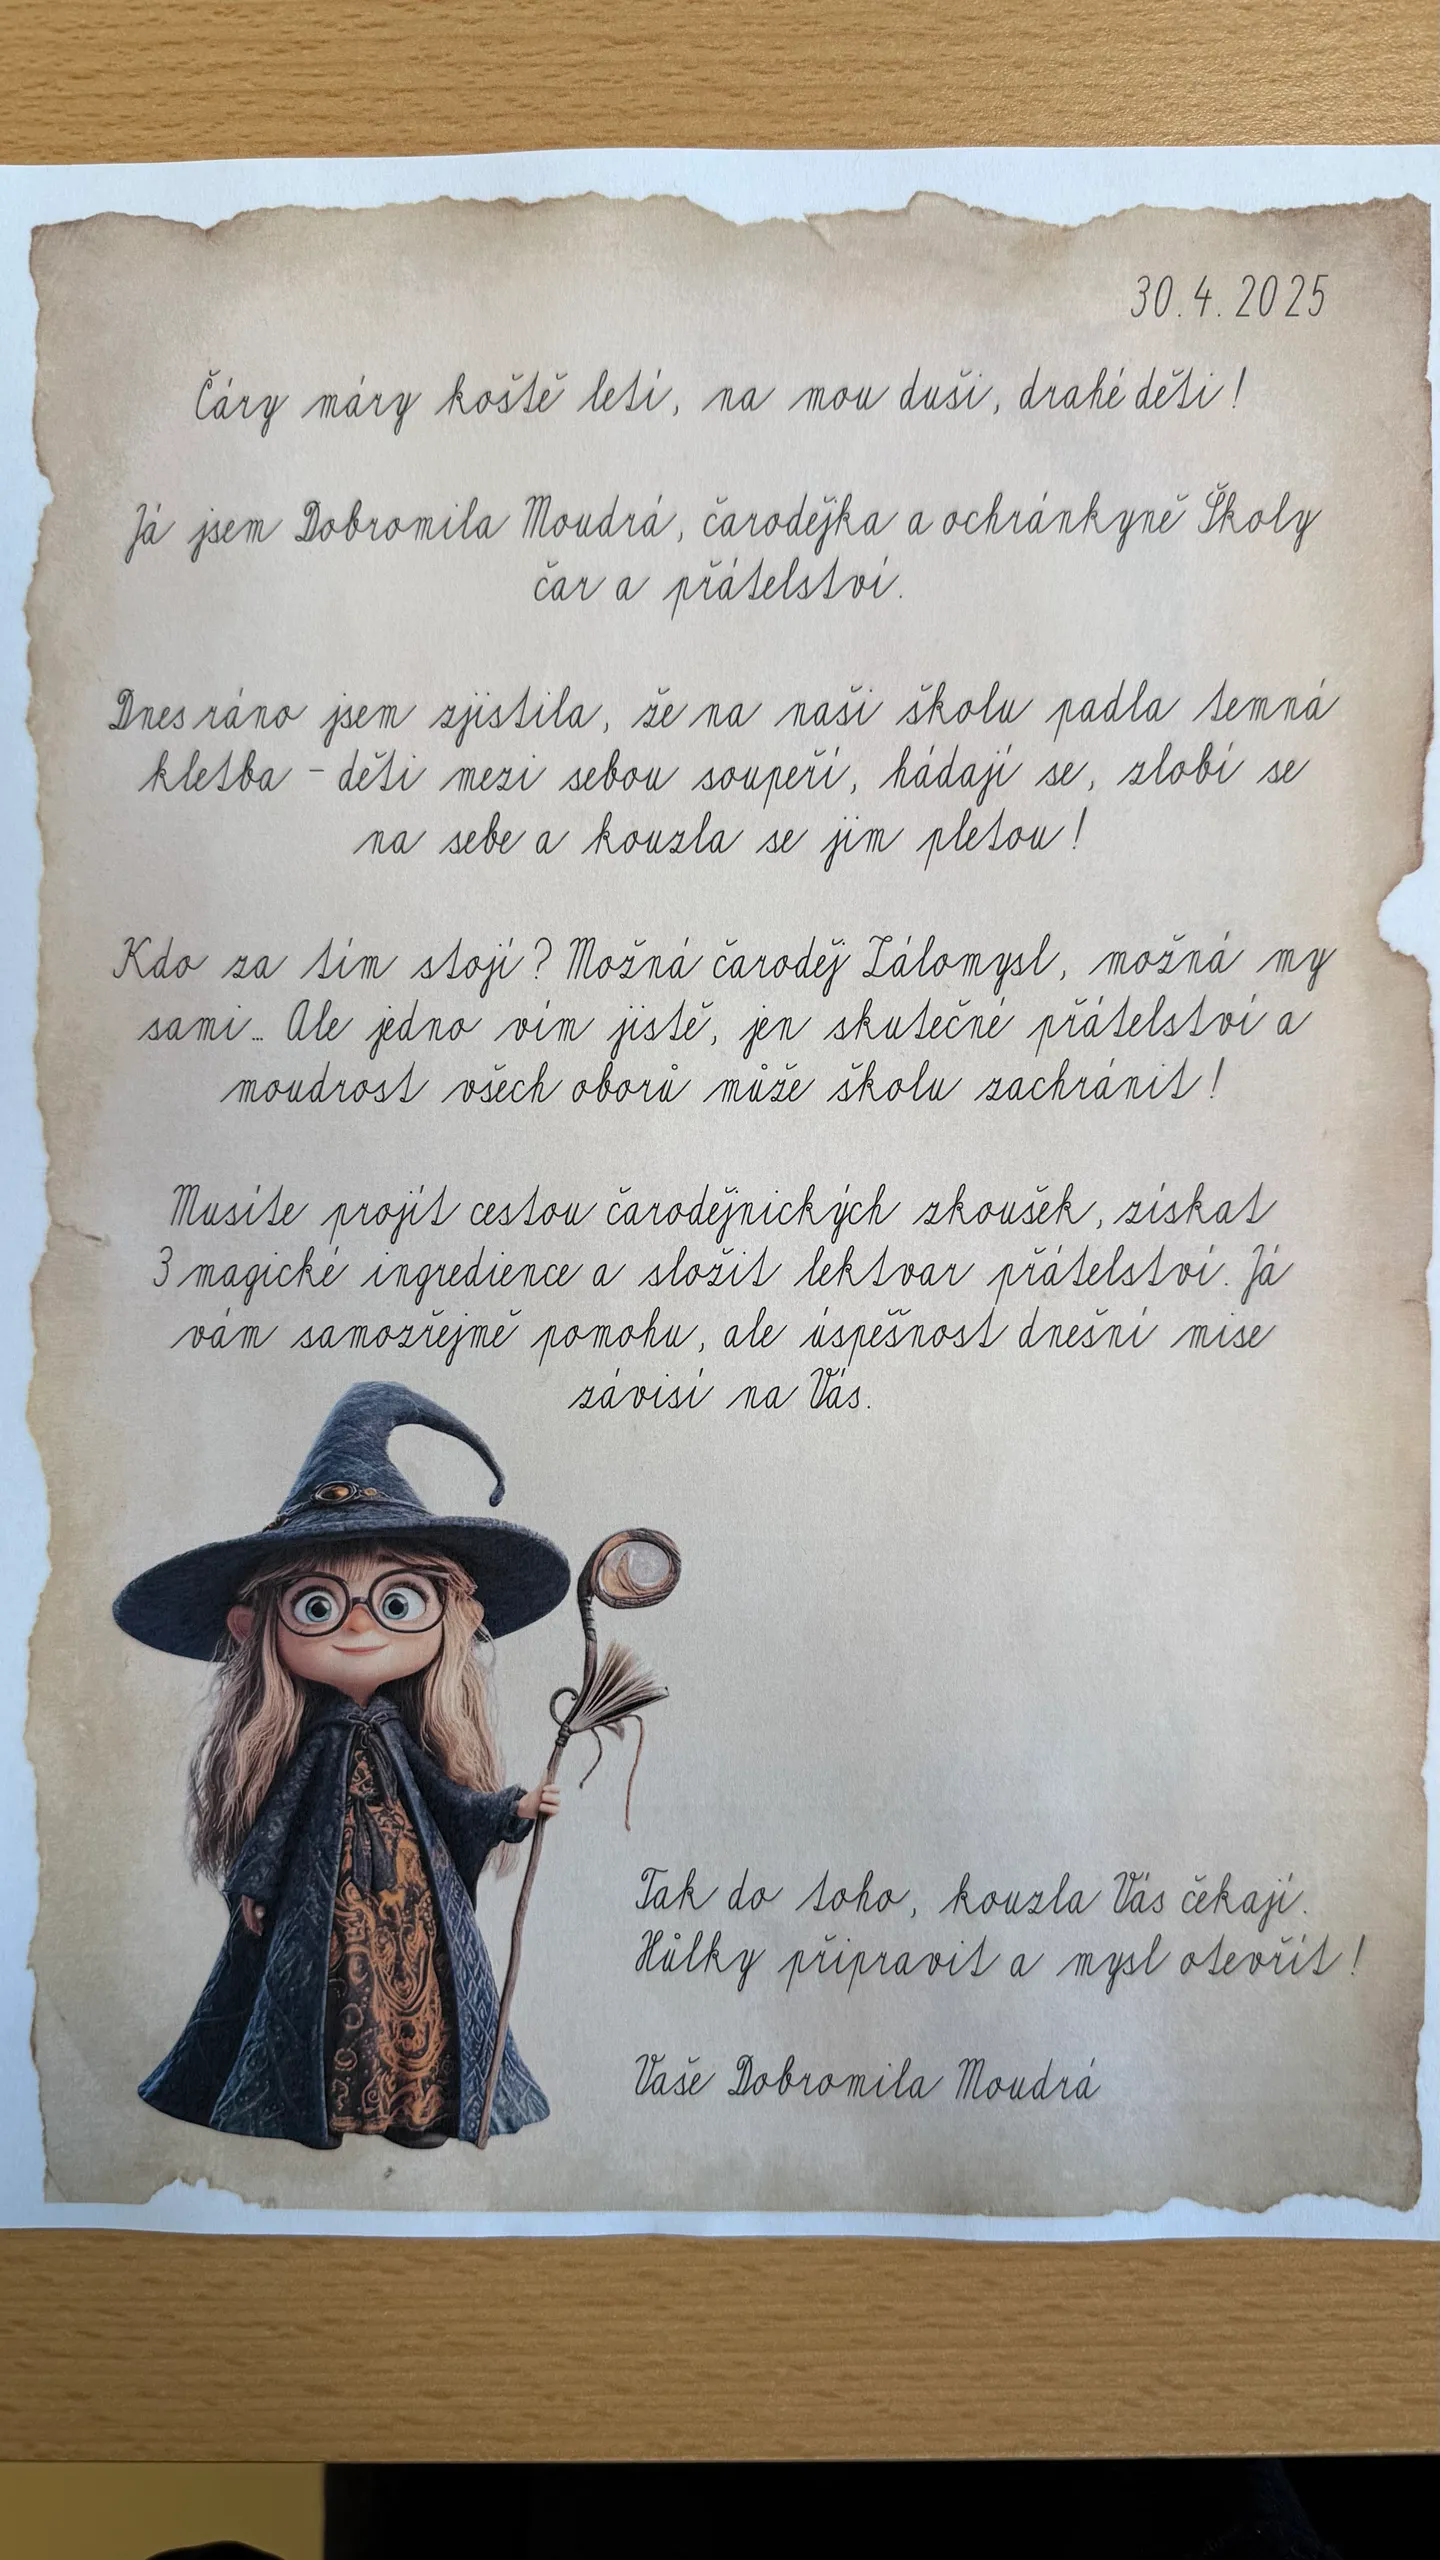 30.4.2025
Čáry máry koště letí, na mou duši, drahé děti!
Já jsem Dobromila Moudrá, čarodějka a ochránkyně Školy
čar a přátelství.
Dnes ráno jsem zjistila, že na naši školu padla temná
kletba - děti mezi sebou soupeří, hádají se, zlobí se
na sebe a kouzla se jim pletou!
Kdo za tím stojí? Možná čaroděj Zálomysl, možná my
sami... Ale jedno vím jistě, jen skutečné přátelství a
moudrost všech oborů může školu zachránit!
Musíte projít cestou čarodějnických zkoušek, získat
3 magické ingredience a složit lektvar přátelství. Já
vám samozřejmě pomohu, ale úspěšnost dnešní mise
závisí na Vás.
Tak do toho, kouzla Vás čekají.
Hůlky připravit a mysl otevřít!
Vaše Dobromila Moudrá